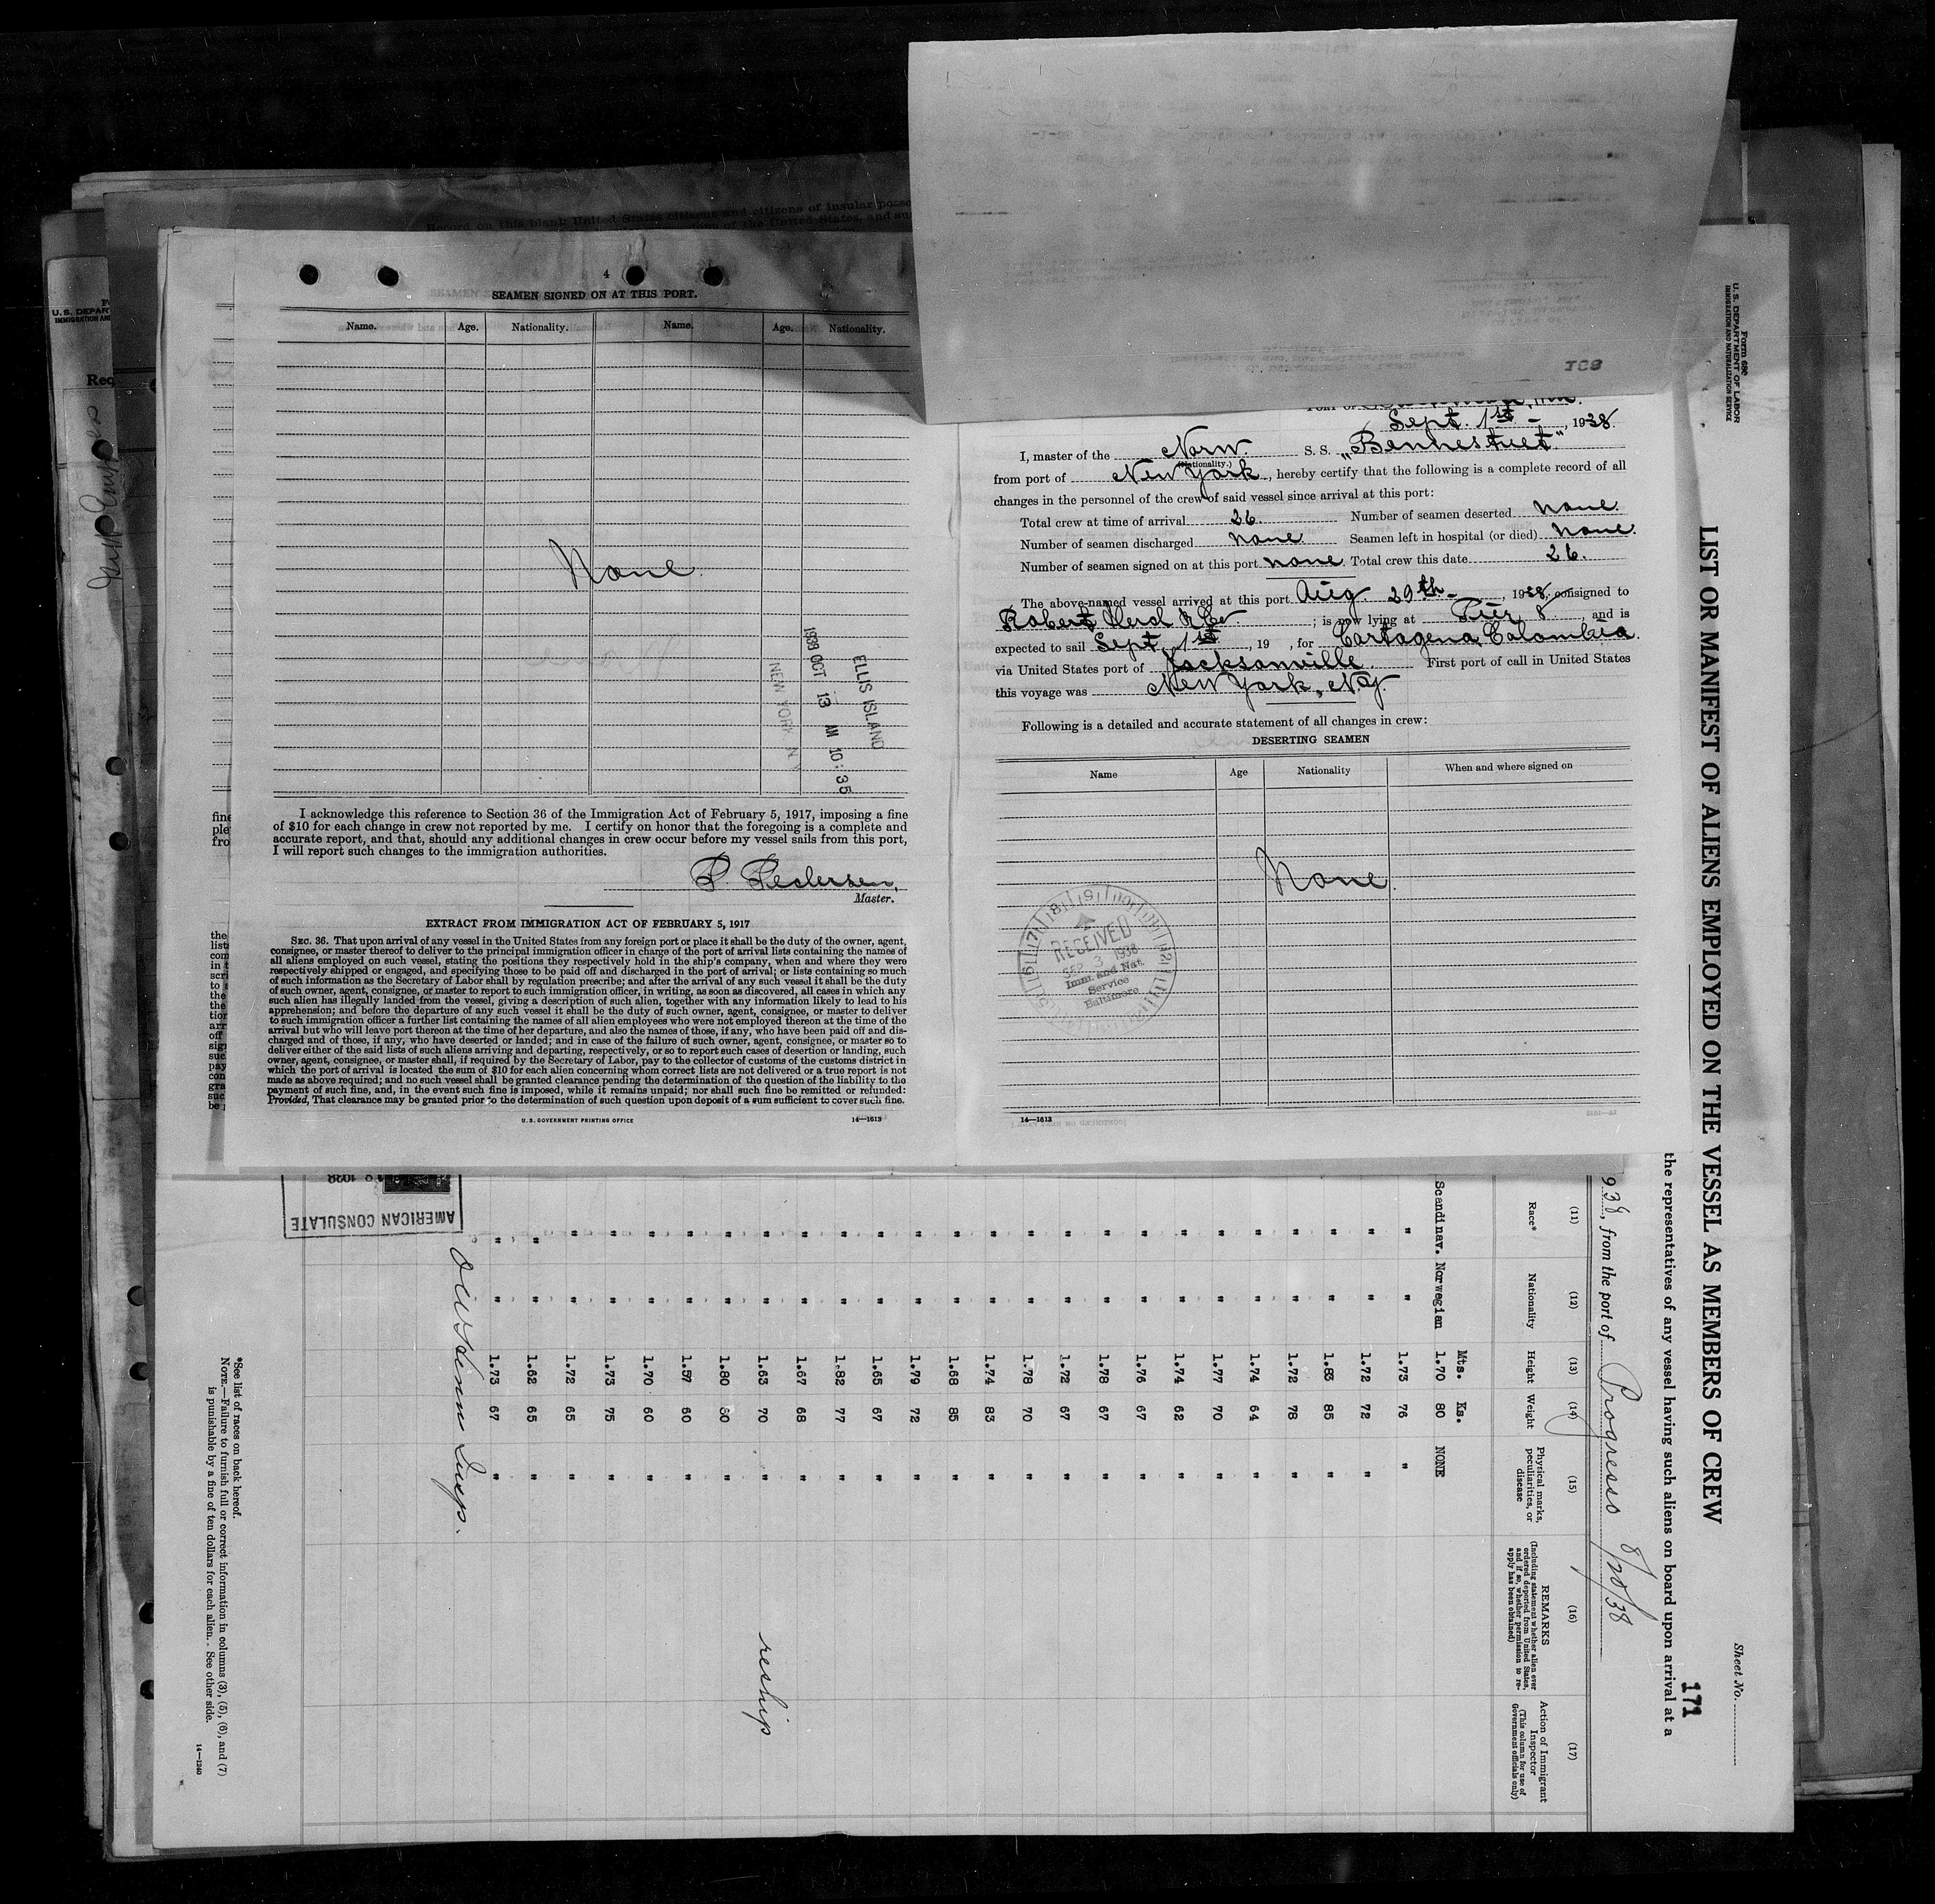 4
SEAMEN SIGNED ON AT THIS PORT.
Name. Age. Nationality. Name. Age. Nationality.
None
ELLIS ISLAND
1938 OCT 13 AM 10:35
NEW YORK N.Y
I acknowledge this reference to Section 36 of the Immigration Act of February 5, 1917, imposing a fine
of $10 for each change in crew not reported by me. I certify on honor that the foregoing is a complete and
accurate report, and that, should any additional changes in crew occur before my vessel sails from this port,
I will report such changes to the immigration authorities.
P. Pedersen,
Master.
EXTRACT FROM IMMIGRATION ACT OF FEBRUARY 5, 1917
SEC. 36. That upon arrival of any vessel in the United States from any foreign port or place it shall be the duty of the owner, agent,
consignee, or master thereof to deliver to the principal immigration officer in charge of the port of arrival lists containing the names of
all aliens employed on such vessel, stating the positions they respectively hold in the ship's company, when and where they were
respectively shipped or engaged, and specifying those to be paid off and discharged in the port of arrival; or lists containing so much
of such information as the Secretary of Labor shall by regulation prescribe; and after the arrival of any such vessel it shall be the duty
of such owner, agent, consignee, or master to report to such immigration officer, in writing, as soon as discovered, all cases in which any
such alien has illegally landed from the vessel, giving a description of such alien, together with any information likely to lead to his
apprehension; and before the departure of any such vessel it shall be the duty of such owner, agent, consignee, or master to deliver
to such immigration officer a further list containing the names of all alien employees who were not employed thereon at the time of the
arrival but who will leave port thereon at the time of her departure, and also the names of those, if any, who have been paid off and dis-
charged and of those, if any, who have deserted or landed; and in case of the failure of such owner, agent, consignee, or master so to
deliver either of the said lists of such aliens arriving and departing, respectively, or so to report such cases of desertion or landing, such
owner, agent, consignee, or master shall, if required by the Secretary of Labor, pay to the collector of customs of the customs district in
which the port of arrival is located the sum of $10 for each alien concerning whom correct lists are not delivered or a true report is not
made as above required; and no such vessel shall be granted clearance pending the determination of the question of the liability to the
payment of such fine, and, in the event such fine is imposed, while it remains unpaid; nor shall such fine be remitted or refunded:
Provided, That clearance may be granted prior to the determination of such question upon deposit of a sum sufficient to cover such fine.
U. S. GOVERNMENT PRINTING OFFICE 14—1613
Sept. 1st - , 1938.
I, master of the Norw. S. S. „Bennestvet"
(Nationality.)
from port of New York, hereby certify that the following is a complete record of all
changes in the personnel of the crew of said vessel since arrival at this port:
Total crew at time of arrival 26. Number of seamen deserted none.
Number of seamen discharged none. Seamen left in hospital (or died) none.
Number of seamen signed on at this port none. Total crew this date 26.
The above-named vessel arrived at this port Aug. 29th - , 1938, consigned to
Robert Herd & Co. ; is now lying at Pier 8 , and is
expected to sail Sept. 1st , 19 , for Cartagena, Colombia.
via United States port of Jacksonville. First port of call in United States
this voyage was New York, N.Y.
Following is a detailed and accurate statement of all changes in crew:
DESERTING SEAMEN
Name Age Nationality When and where signed on
None.
RECEIVED
SEP 3 1938
Imm. and Nat.
Service
Baltimore
14—1613
Form 680
U. S. DEPARTMENT OF LABOR
IMMIGRATION AND NATURALIZATION SERVICE
Sheet No.
LIST OR MANIFEST OF ALIENS EMPLOYED ON THE VESSEL AS MEMBERS OF CREW
171
the representatives of any vessel having such aliens on board upon arrival at a
938, from the port of Progreso 8/20/38
(11) (12) (13) (14) (15) (16) (17)
Race* Nationality Height Weight Physical marks, peculiarities, or disease REMARKS (Including statement whether alien ever ordered deported from United States, and if so, whether permission to re-apply has been obtained) Action of Immigrant Inspector (This column for use of Government officials only)
Mts. Ks.
Scandinav. Norwegian 1.70 80 NONE
" " 1.73 76 "
" " 1.72 72 "
" " 1.83 85 "
" " 1.72 78 "
" " 1.74 64 "
" " 1.77 70 "
" " 1.74 62 "
" " 1.76 67 "
" " 1.78 67 "
" " 1.72 67 "
" " 1.78 70 "
" " 1.74 83 "
" " 1.68 85 "
" " 1.79 72 "
" " 1.65 67 "
" " 1.82 77 "
" " 1.67 68 "
" " 1.63 70 " reship
" " 1.80 80 "
" " 1.57 60 "
" " 1.70 60 "
" " 1.73 75 "
" " 1.72 65 "
" " 1.62 65 "
" " 1.73 67 "
Insp.
AMERICAN CONSULATE
*See list of races on back hereof.
NOTE.—Failure to furnish full or correct information in columns (3), (5), (6), and (7)
is punishable by a fine of ten dollars for each alien. See other side.
14—1240